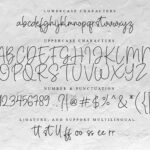 LOWERCASE CHARACTERS
abcdefghijklmnopqrstuvwxyz
UPPERCASE CHARACTERS
ABCDEFGHIJKLM
NOPQRSTUVWXYZ
NUMBER & PUNCTUATION
0123456789
LIGATURE, AND SUPPORT MULTILINGUAL
tt ff oo ss ee rr